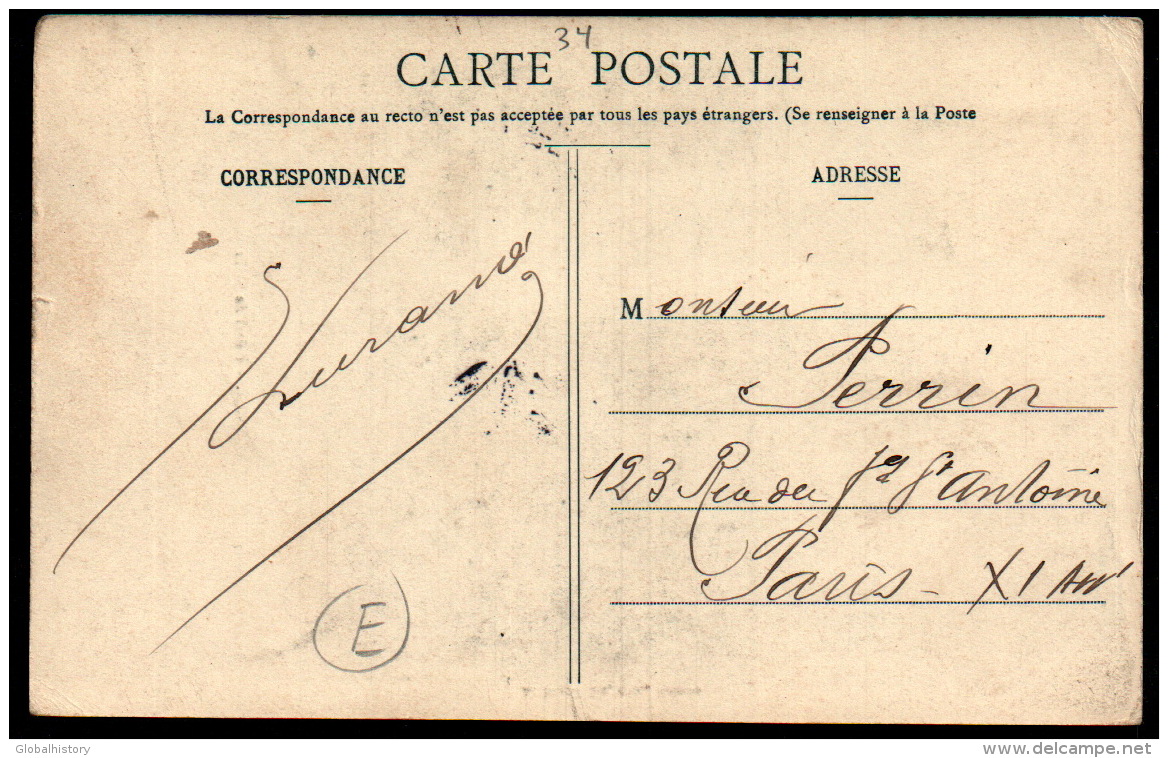 34
CARTE POSTALE
La Correspondance au recto n'est pas acceptée par tous les pays étrangers. (Se renseigner à la Poste
CORRESPONDANCE
ADRESSE
Monsieur
Perrin
123 Rue du fg St Antoine
Paris - XI Arrt
E
Globalhistory
delcampe.net